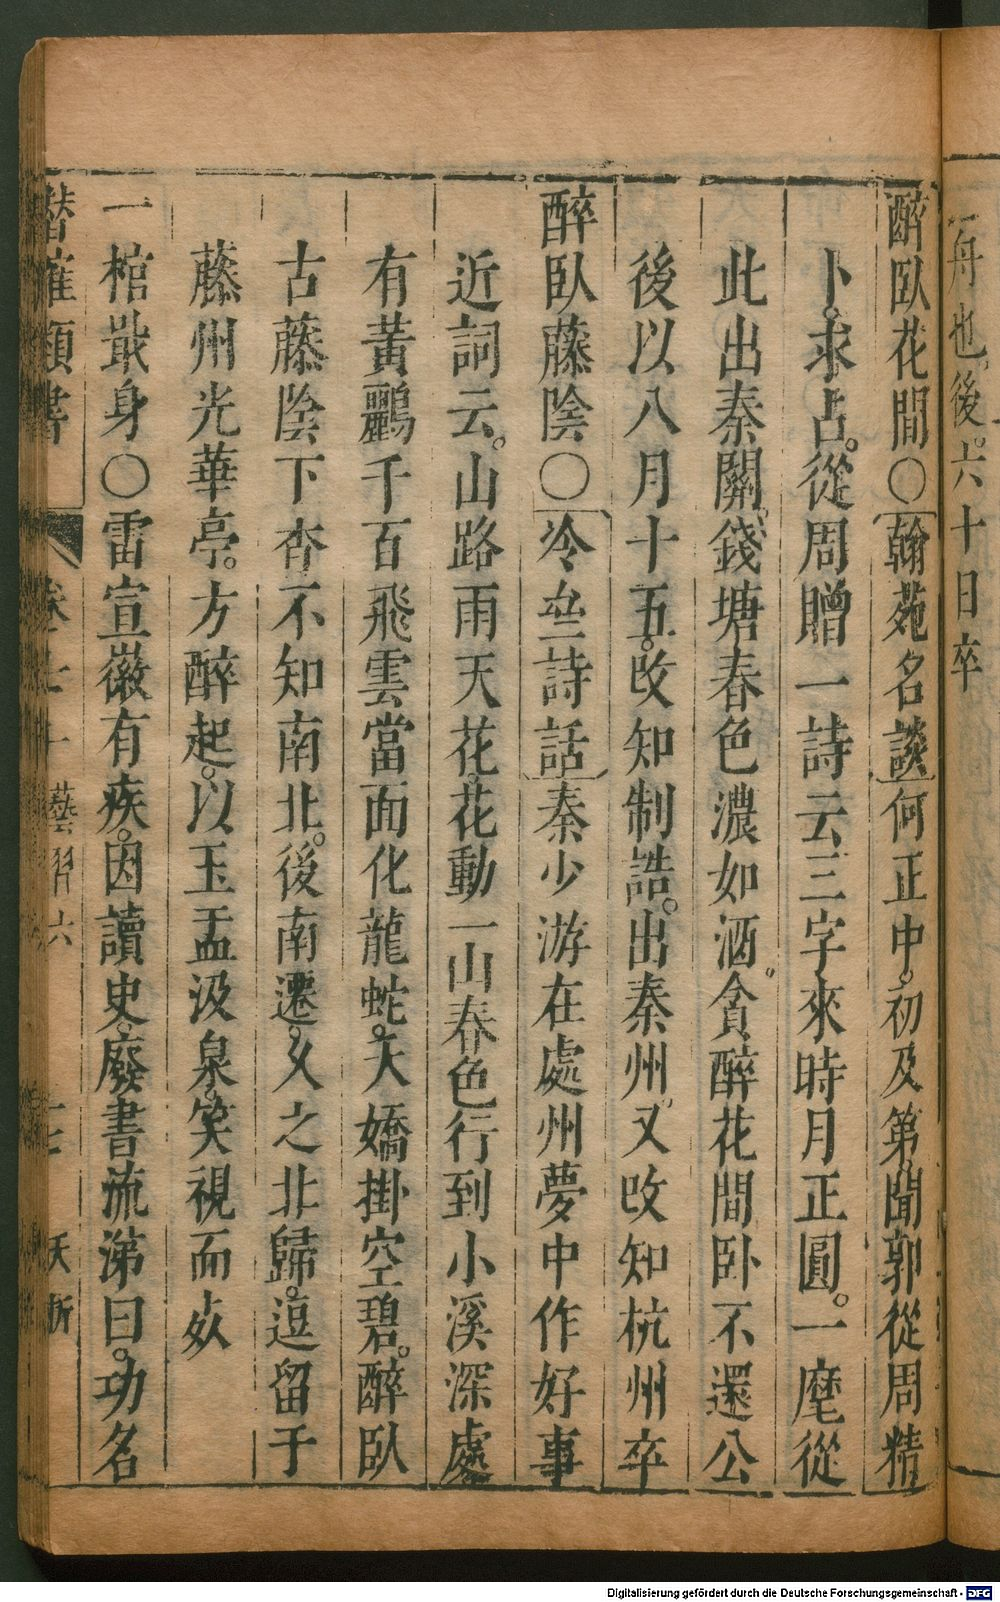 一舟也後六十日卒
醉臥花間○翰苑名談何正中。初及第聞郭從周精
卜。求占。從周贈一詩云三字來時月正圓。一麾從
此出秦關。錢塘春色濃如酒。貪醉花間卧不還公
後以八月十五。改知制誥。出秦州。又改知杭州卒
醉臥藤陰○冷齋詩話秦少游在處州夢中作好事
近詞云。山路雨天花。花動一山春色行到小溪深處
有黃鸝千百飛雲當面化龍蛇。夭嬌掛空碧。醉臥
古藤陰下杳不知南北。後南遷。久之北歸。逗留于
藤州光華亭。方醉起。以玉盂汲泉。笑視而卒
一棺戢身○雷宣徽有疾。因讀史。廢書流涕曰。功名
潛確類書
卷七十
藝習六
十七
夭折
Digitalisierung gefördert durch die Deutsche Forschungsgemeinschaft - DFG